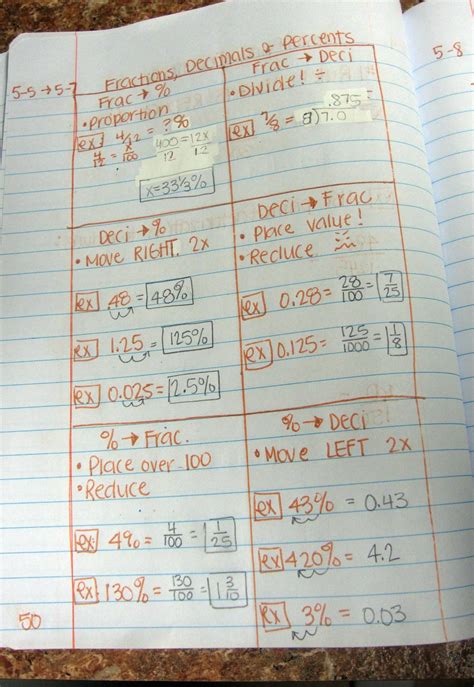 5-5 → 5-7
5-8
Fractions, Decimals & Percents
Frac → %
• Proportion
ex 4/12 = ?%
4/12 = x/100
400 = 12x
12 12
x = 33⅓%
Frac → Deci
• Divide! ÷
.875 =
ex 7/8 = 8)7.0
Deci → %
• Move RIGHT 2x
ex .48 = 48%
ex 1.25 = 125%
ex 0.025 = 2.5%
Deci → Frac
• Place Value!
• Reduce
ex 0.28 = 28/100 = 7/25
ex 0.125 = 125/1000 = 1/8
% → Frac.
• Place over 100
• Reduce
ex: 4% = 4/100 = 1/25
ex: 130% = 130/100 = 1 3/10
% → Deci
• Move LEFT 2x
ex 43% = 0.43
ex 420% = 4.2
ex 3% = 0.03
50